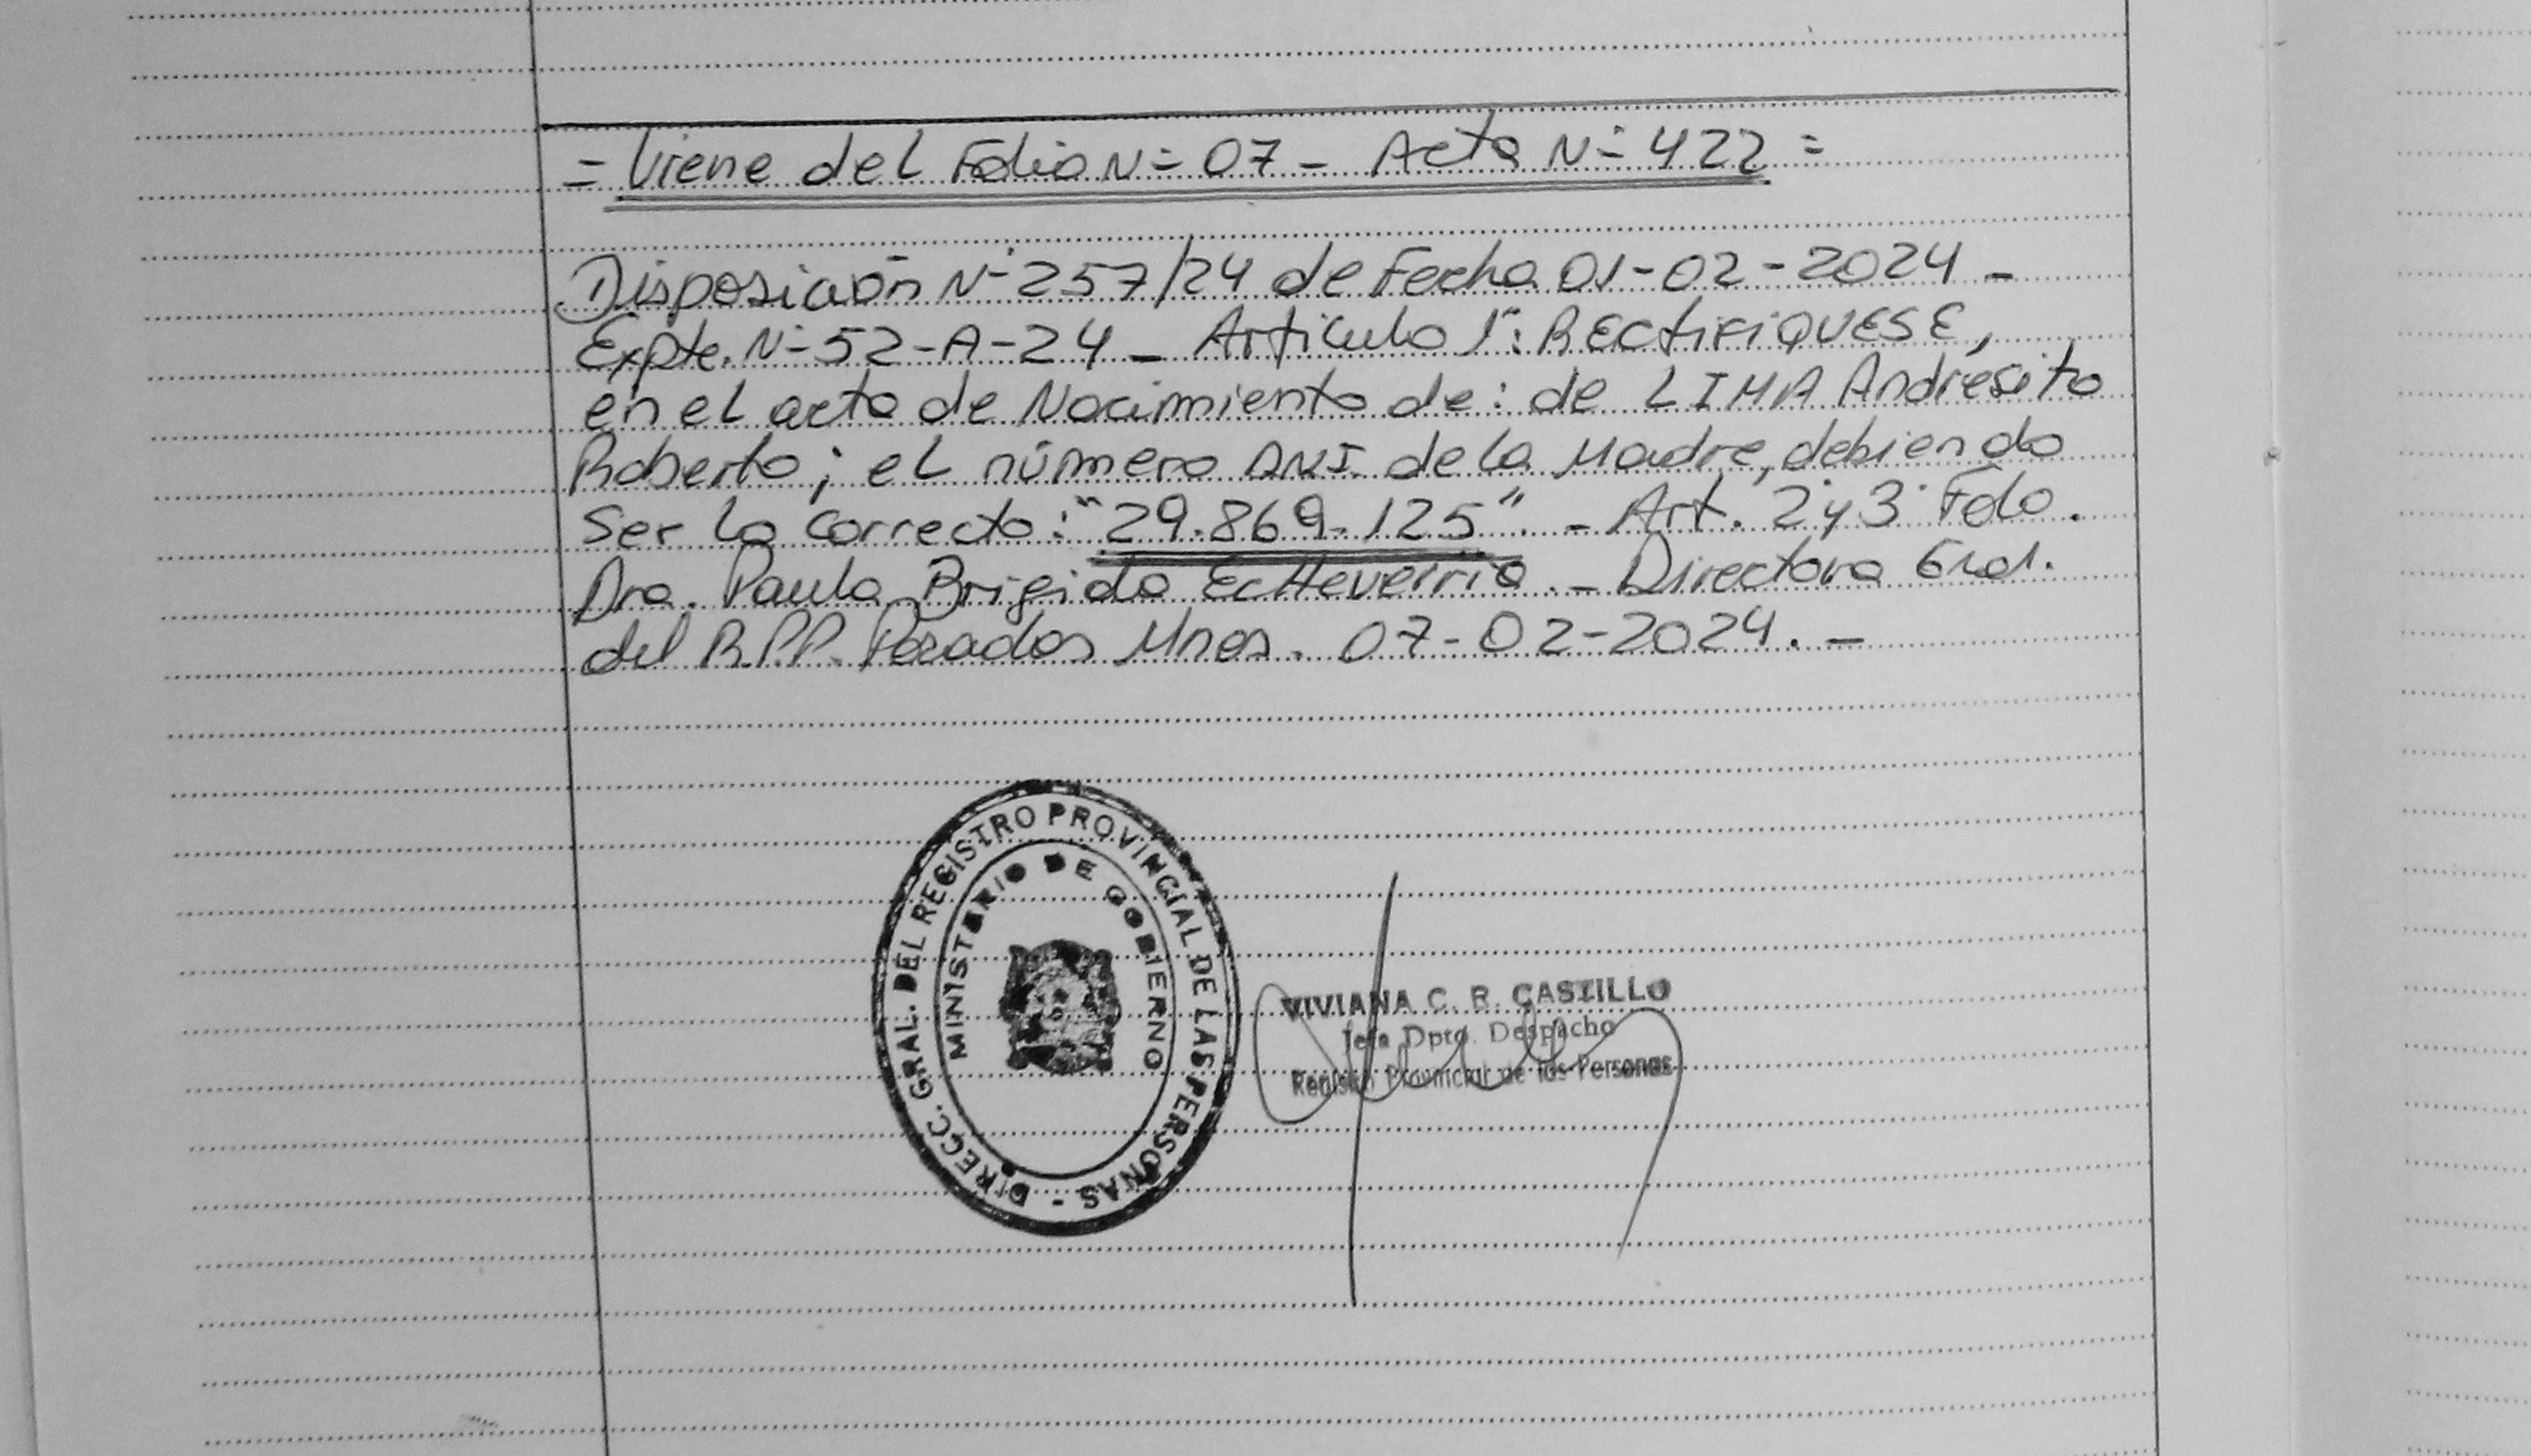 = Viene del Folio Nº 07 - Acta Nº 422 =
Disposición Nº 257/24 de Fecha 01-02-2024 -
Expte. Nº 52-A-24 - Artículo 1º: RECTIFIQUESE,
en el acta de Nacimiento de: de LIMA Andresito
Roberto; el número DNI. de la Madre, debiendo
Ser lo correcto: "29.869.125". - Art. 2º y 3º Fdo.
Dra. Paula Brigida Echeverria. - Directora Gral.
del R.P.P. Posadas Mnes. 07-02-2024. -
DIRECC. GRAL. DEL REGISTRO PROVINCIAL DE LAS PERSONAS -
MINISTERIO DE GOBIERNO
VIVIANA C. R. CASTILLO
Jefa Dpto. Despacho
Registro Provincial de las Personas